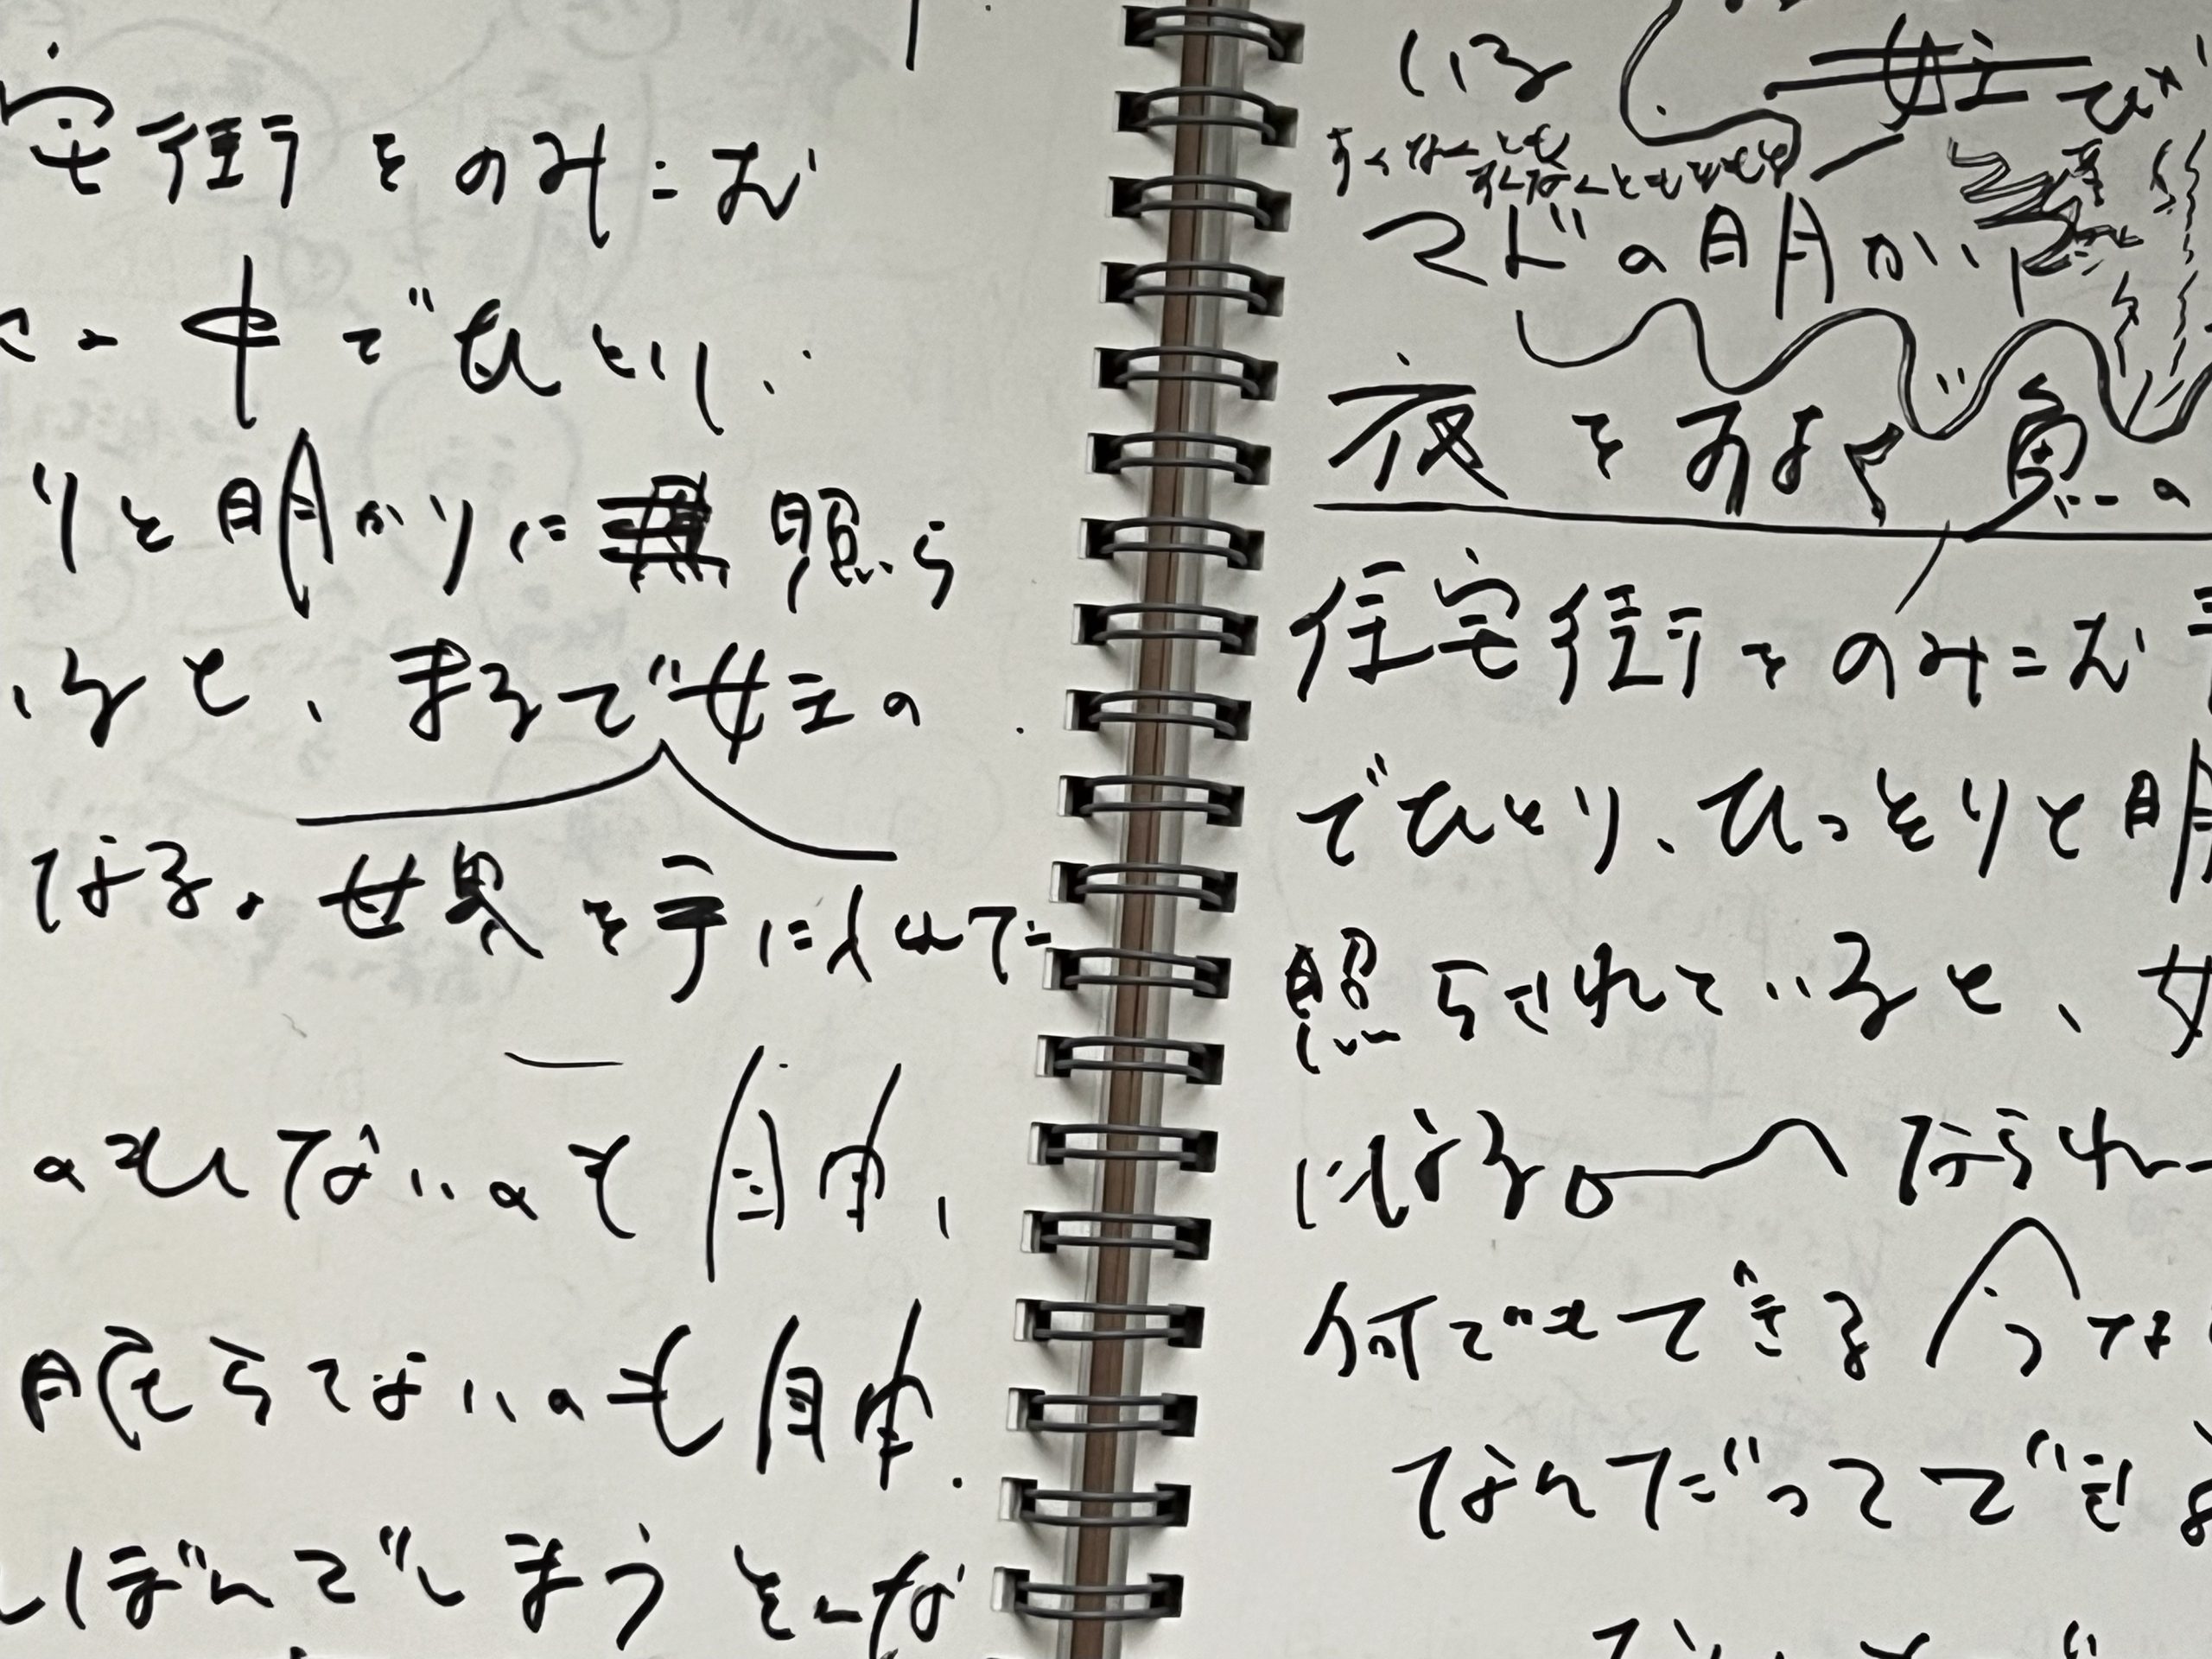 宅街をのみこむ
中でひとり、
りと明かりに照ら
いると、まるで女王の
なる。世界を手に入れた
のまれてないのも自由、
眠らないのも自由.
しぼんでしまうとな
いる
すくなくとも
すくなくとも
マドの明かり
夜をおよぐ魚の
住宅街をのみこむ
でひとり、ひっそりと明
照らされていると、女
になる。なられ
何でもできる
なんだってでき